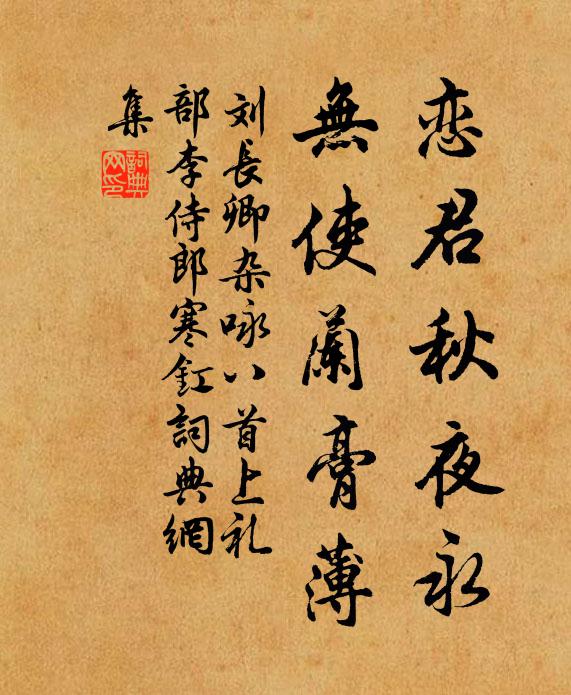 恋君秋夜永
無使蘭膏薄
刘長卿杂咏八首上礼
部李侍郎寒釭詞典網
集
詞典
网印